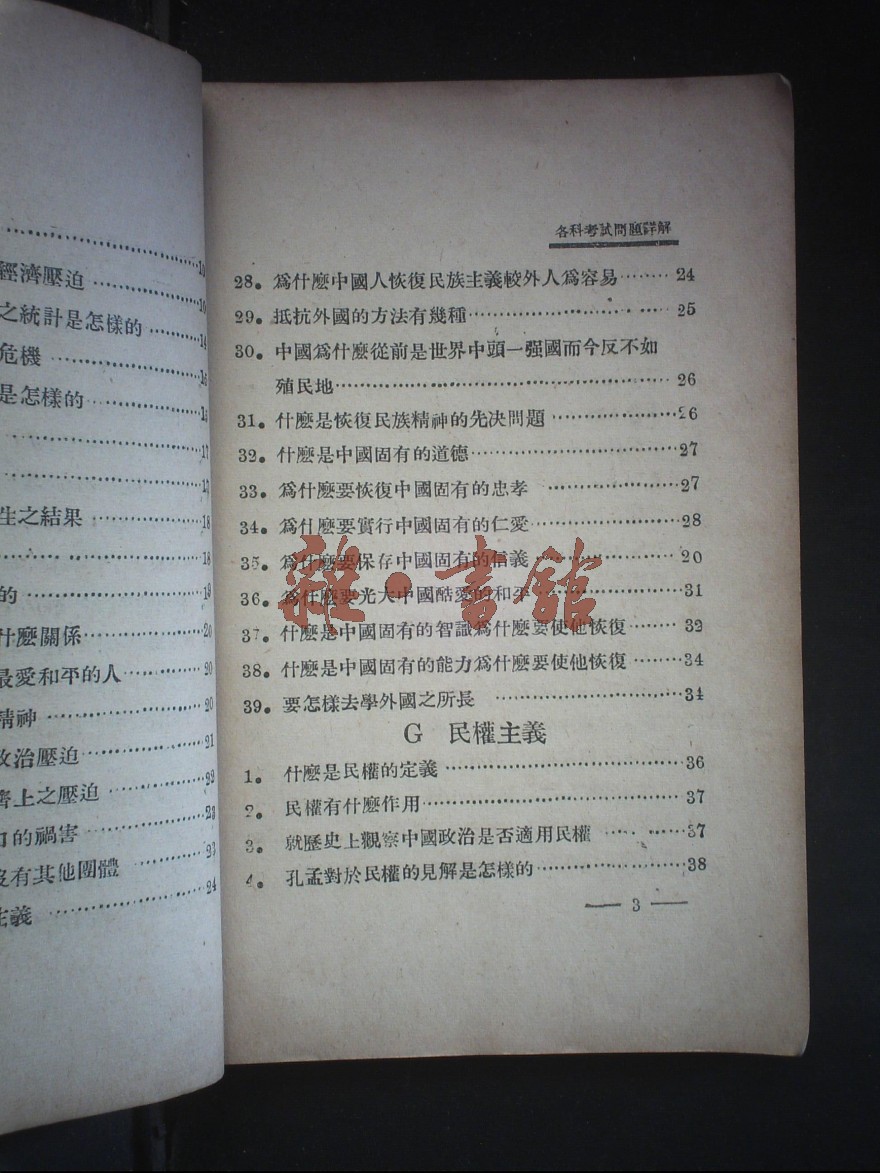 經濟壓迫
之統計是怎樣的
危機
是怎樣的
生之結果
的
什麼關係
最愛和平的人
精神
政治壓迫
濟上之壓迫
口的禍害
沒有其他團體
主義
各科考試問題詳解
28。爲什麼中國人恢復民族主義較外人爲容易………24
29。抵抗外國的方法有幾種………25
30。中國爲什麼從前是世界中頭一强國而今反不如
殖民地………26
31。什麼是恢復民族精神的先决問題………26
32。什麼是中國固有的道德………27
33。爲什麼要恢復中國固有的忠孝………27
34。爲什麼要實行中國固有的仁愛………28
35。爲什麼要保存中國固有的信義………20
36。爲什麼要光大中國酷愛的和平………31
37。什麼是中國固有的智識爲什麼要使他恢復………32
38。什麼是中國固有的能力爲什麼要使他恢復………34
39。要怎樣去學外國之所長………34
G 民權主義
1。什麼是民權的定義………36
2。民權有什麼作用………37
3。就歷史上觀察中國政治是否適用民權………37
4。孔孟對於民權的見解是怎樣的………38
— 3 —
雜·書館